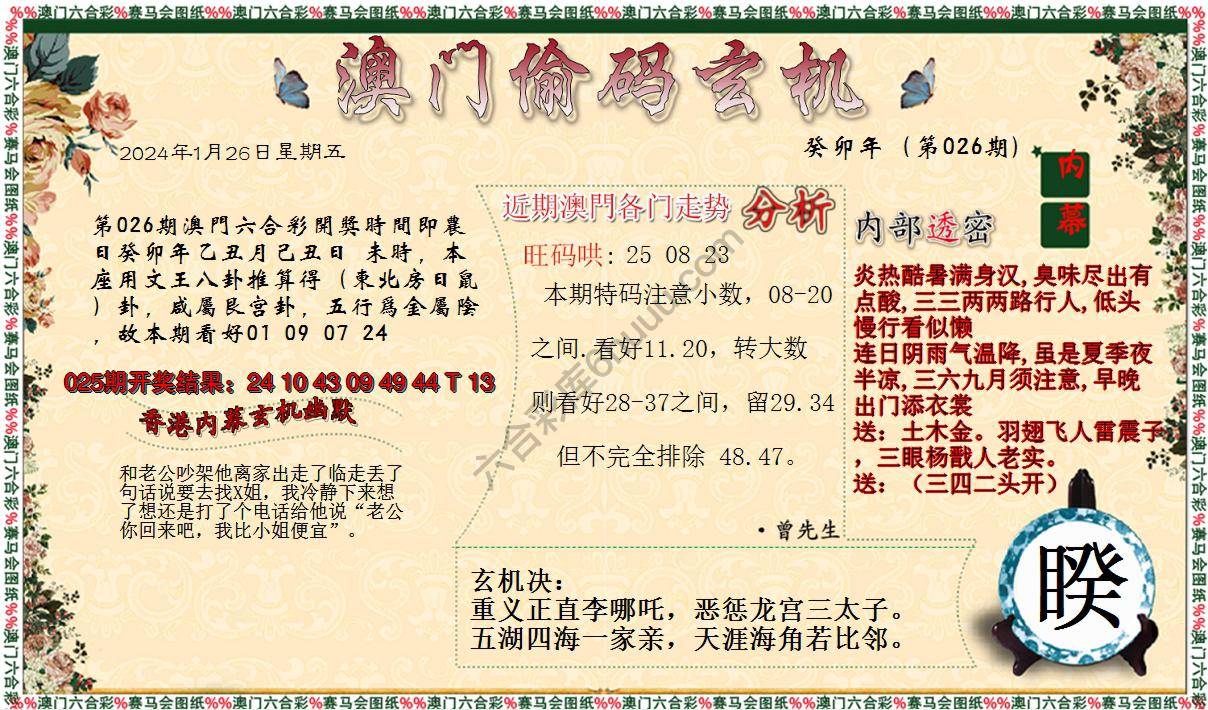 %%澳门六合彩%赛马会图纸%%澳门六合彩%赛马会图纸%%澳门六合彩%赛马会图纸%%澳门六合彩%赛马会图纸%%澳门六合彩%赛马会图纸%%澳门六合彩%赛马会图纸%%
澳门偷码玄机
2024年1月26日星期五
癸卯年（第026期）
内幕
第026期澳門六合彩開獎時間即農
日癸卯年乙丑月己丑日 未時，本
座用文王八卦推算得（東北房日鼠
）卦，咸屬艮宫卦，五行爲金屬陰
，故本期看好01 09 07 24
025期开奖结果：24 10 43 09 49 44 T 13
香港内幕玄机幽默
和老公吵架他离家出走了临走丢了
句话说要去找X姐，我冷静下来想
了想还是打了个电话给他说“老公
你回来吧，我比小姐便宜”。
近期澳門各门走势 分析
旺码哄: 25 08 23
本期特码注意小数，08-20
之间.看好11.20，转大数
则看好28-37之间，留29.34
但不完全排除 48.47。
·曾先生
内部透密
炎热酷暑满身汉,臭味尽出有
点酸,三三两两路行人,低头
慢行看似懒
连日阴雨气温降,虽是夏季夜
半凉,三六九月须注意,早晚
出门添衣裳
送：土木金。羽翅飞人雷震子
，三眼杨戬人老实。
送：（三四二头开）
玄机决：
重义正直李哪吒，恶惩龙宫三太子。
五湖四海一家亲，天涯海角若比邻。
暌
%%澳门六合彩%赛马会图纸%%澳门六合彩%赛马会图纸%%澳门六合彩%赛马会图纸%%澳门六合彩%赛马会图纸%%澳门六合彩%赛马会图纸%%澳门六合彩%赛马会图纸%%